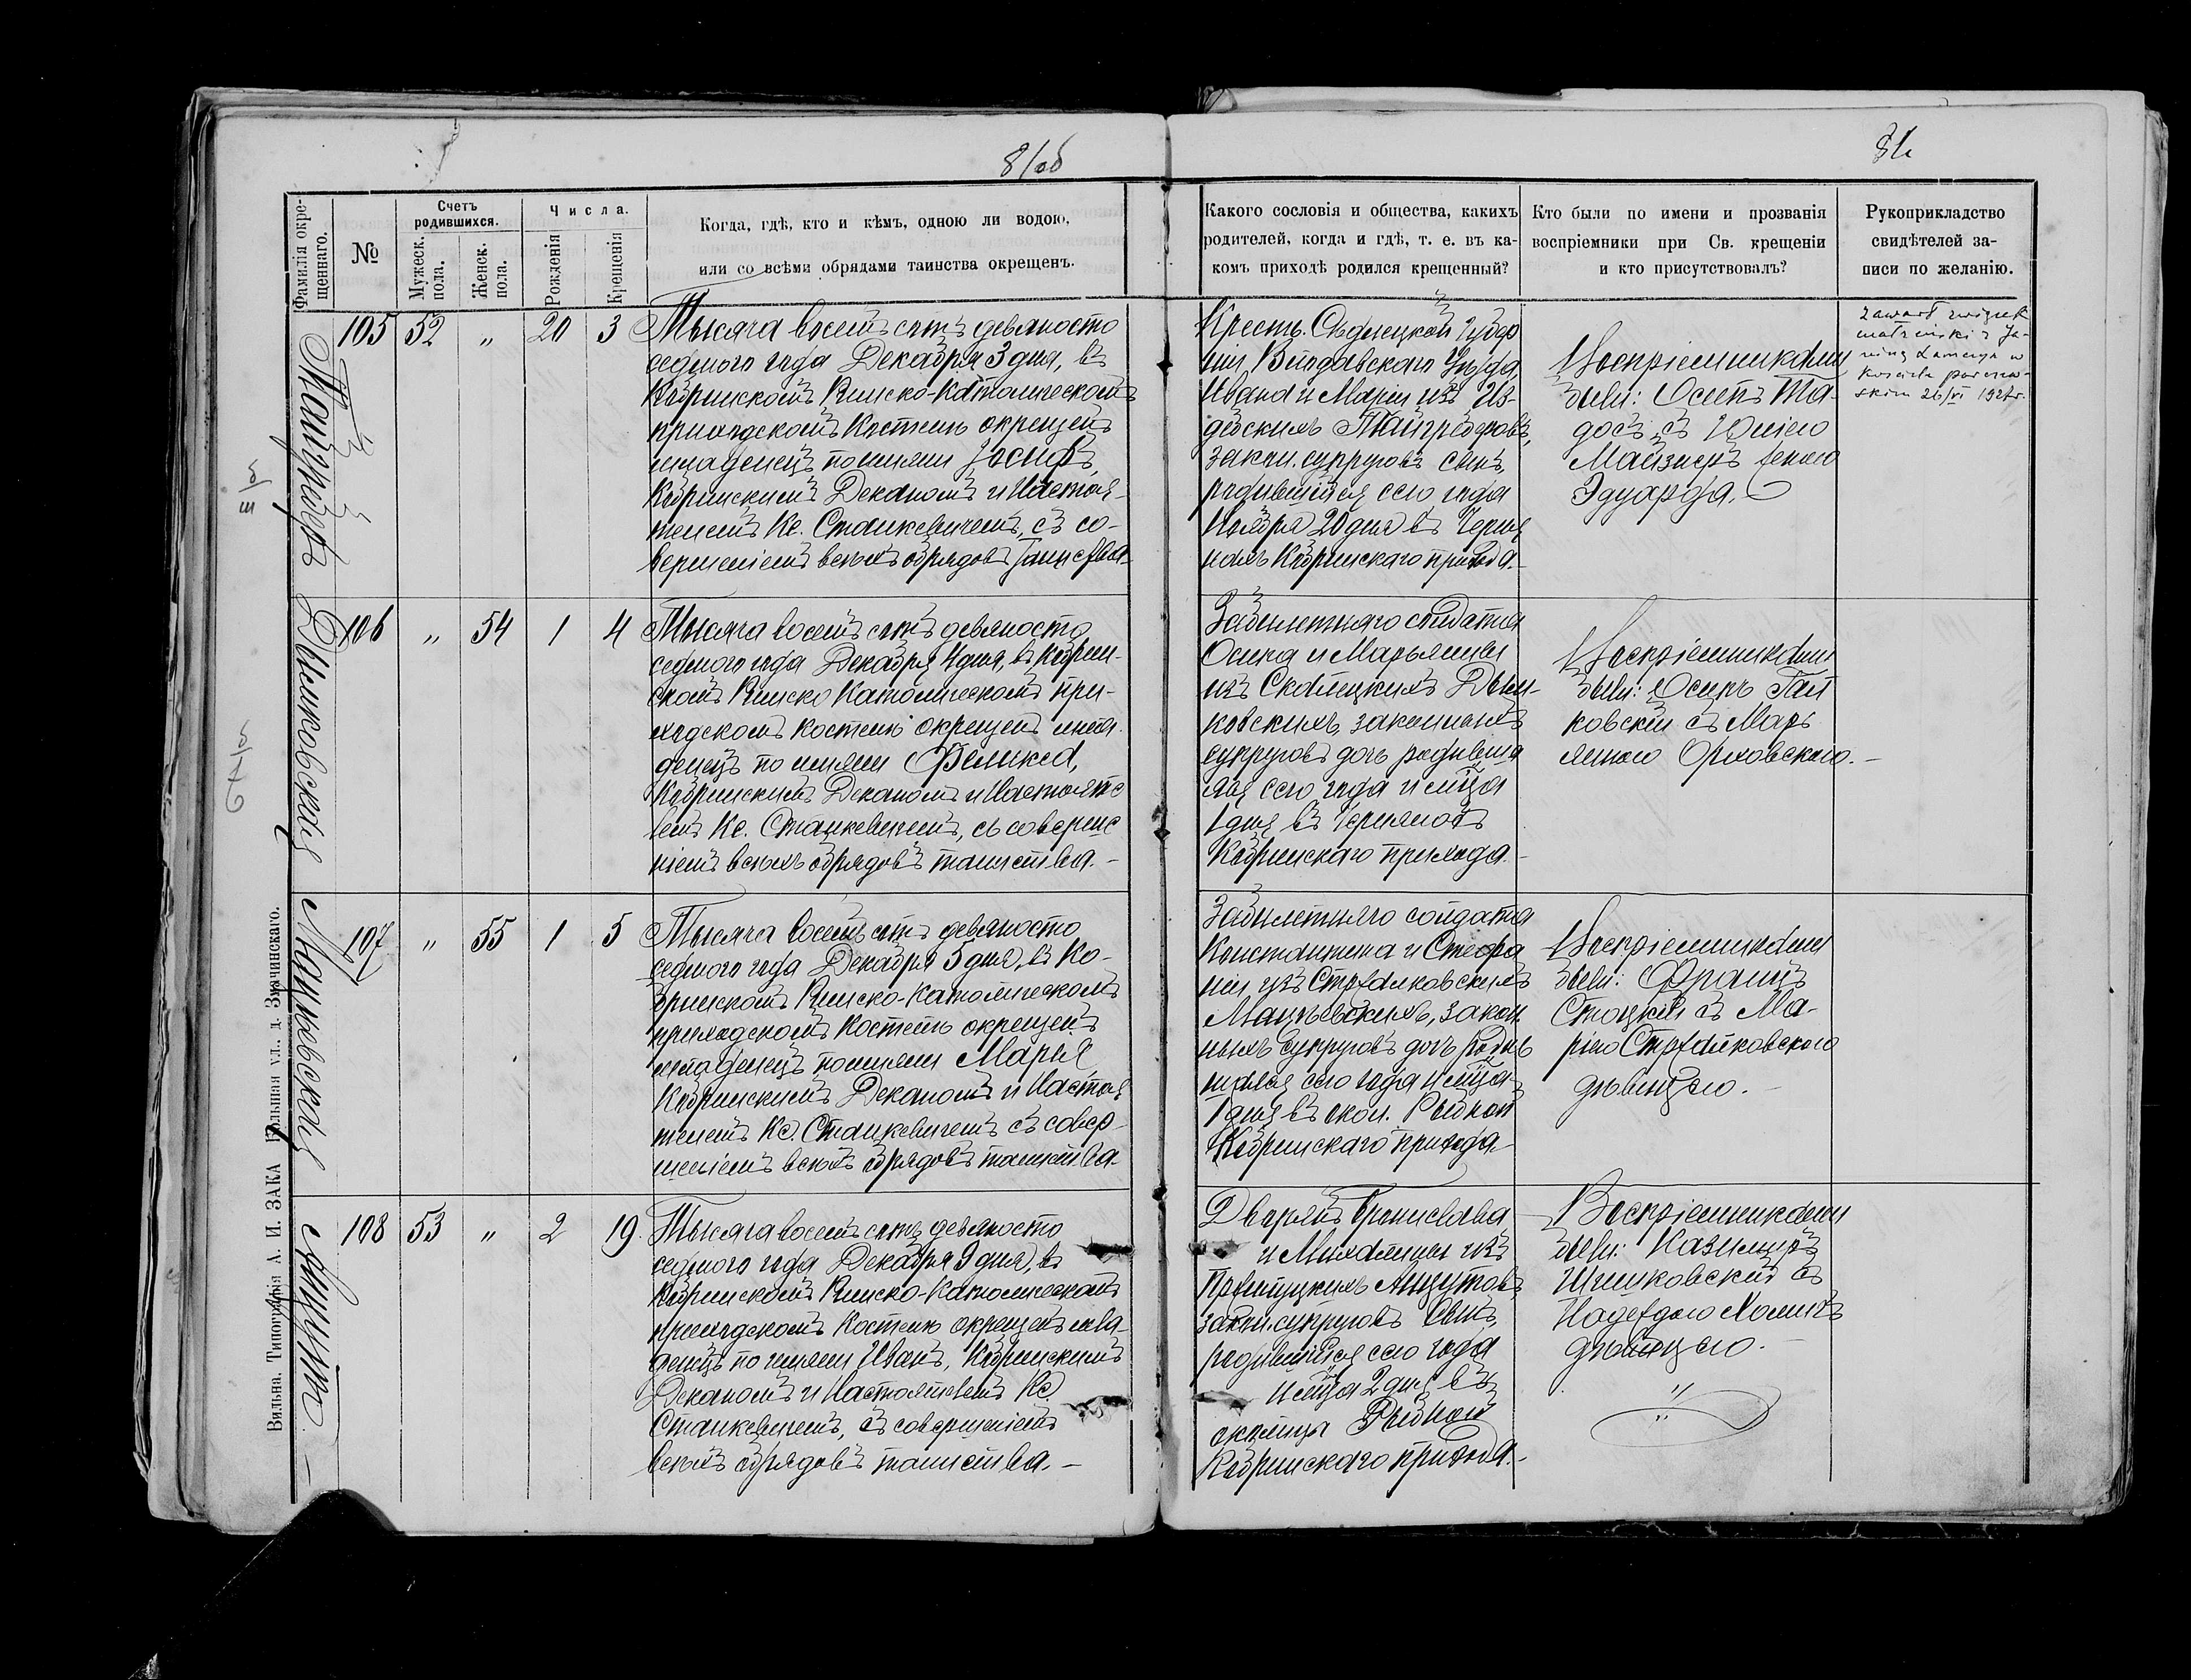 81об
82
Фамилія окре-
щеннаго.
№
Счетъ
родившихся.
Мужеск.
пола.
Женск.
пола.
Числа.
Рожденія
Крещенія
Когда, гдѣ, кто и кѣмъ, одною ли водою,
или со всѣми обрядами таинства окрещенъ.
Какого сословія и общества, какихъ
родителей, когда и гдѣ, т. е. въ ка-
комъ приходѣ родился крещенный?
Кто были по имени и прозванія
воспріемники при Св. крещеніи
и кто присутствовалъ?
Рукоприкладство
свидѣтелей за-
писи по желанію.
105 52 " 20 3
Тысяча восемъ сотъ девяносто
седмого года Декабря 3 дня, въ
Кобринскомъ Римско-Католическомъ
приходскомъ Костелѣ окрещенъ
младенецъ по имени Іосифъ,
Кобринскимъ Деканомъ и Настоя-
телемъ Кс. Станкевичемъ, съ со-
вершеніемъ всѣхъ обрядовъ Таинства
Крест. Сѣдлецкой Губер
ніи, Влодавскаго Уѣзда
Ивана и Маріи изъ
закон. супруговъ сынъ,
родившійся сего года
Ноября 20 дня въ
Кобринскаго прихода.
Воспріемниками
были: Осипъ
съ Юліею
Майзнеръ женою
Эдуарда.
zawarł związek
małżeński z Ja-
niną
kościele
26/VI 1927 r.
106 " 54 1 4
Дымковская
Тысяча восемъ сотъ девяносто
седмого года Декабря 4 дня, въ Кобрин-
скомъ Римско Католическомъ при-
ходскомъ костелѣ окрещенъ мла
денецъ по имени Феликса,
Кобринскимъ Деканомъ и Настояте
лемъ Кс. Станкевичемъ, съ соверше
ніемъ всѣхъ обрядовъ таинства. –
Забилетнаго солдата
Осипа и Марьянны
изъ Скабицкихъ Дым-
ковскихъ, законныхъ
супруговъ дочь родивша
яся сего года и мѣца
1 дня въ
Кобринскаго прихода. –
Воспріемниками
были: Осипъ Гай
ковскій съ Марь
янною Орловскою. –
107 " 55 1 5
Мацѣевская
Тысяча восемъ сотъ девяносто
седмого года Декабря 5 дня, въ Ко-
бринскомъ Римско-Католическомъ
приходскомъ Костелѣ окрещенъ
младенецъ по имени Марья
Кобринскимъ Деканомъ и Настоя
телемъ Кс. Станкевичемъ съ совер-
шеніемъ всѣхъ обрядовъ таинства
Забилетнаго солдата
Константина и Стефа
ніи изъ Стржалковскихъ
Мацѣевскихъ, закон
ныхъ супруговъ дочь родив
шаяся сего года и мѣца
1 дня въ окол. Рыбной
Кобринскаго прихода
Воспріемниками
были: Францъ
Стоцкій съ Ма-
ріею Стржалковскою
дѣвицею. –
108 53 " 2 19
Анцута
Тысяча восемъ сотъ девяносто
седмого года Декабря 9 дня, въ
Кобринскомъ Римско-Католическомъ
приходскомъ Костелѣ окрещенъ мла-
денецъ по имени Иванъ, Кобринскимъ
Деканомъ и Настоятелемъ Кс
Станкевичемъ, съ совершеніемъ
всѣхъ обрядовъ таинства. –
Дворянъ Бронислава
и Михалины изъ
Анцутовъ,
закон. супруговъ сынъ,
родившійся сего года
и мѣца 2 дня въ
околицѣ Рыбной
Кобринскаго прихода. –
Воспріемниками
были: Казиміръ
съ
Надеждою
дѣвицею. –
Вильна. Типографія А. И. ЗАКА Большая ул., д. Значинскаго.